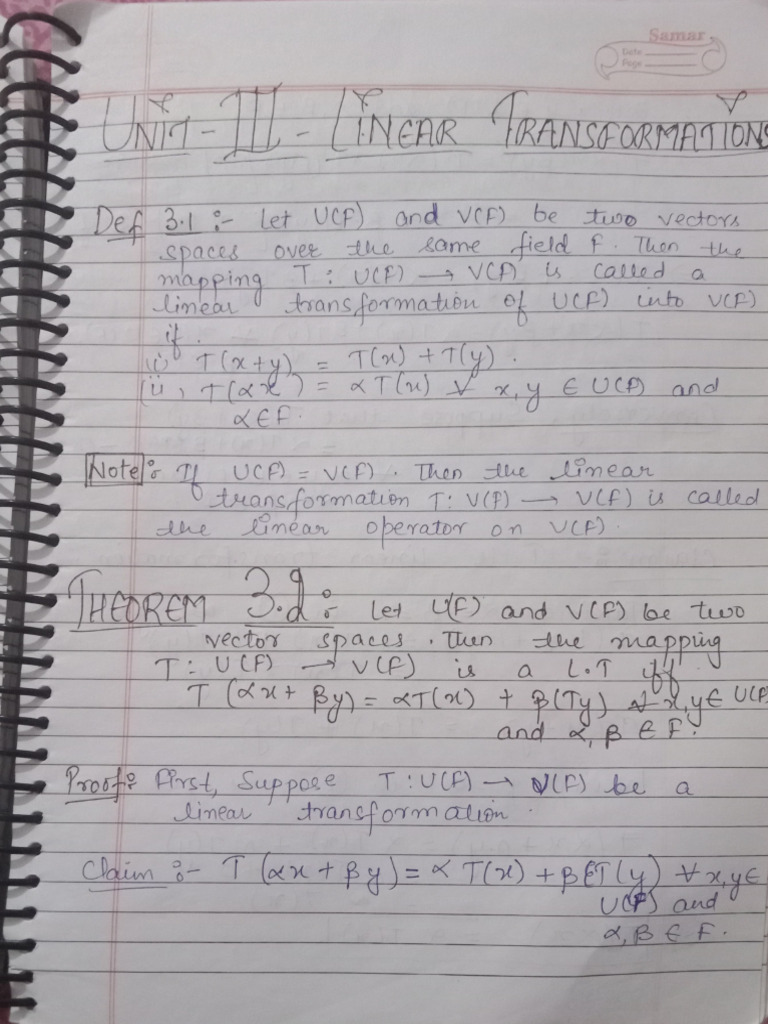 Samar
Date
Page
UNIT-III-LINEAR TRANSFORMATIONS
Def 3.1 :- Let U(F) and V(F) be two vectors
spaces over the same field F. Then the
mapping T : U(F) → V(F) is called a
linear transformation of U(F) into V(F)
if.
(i) T(x+y) = T(x) + T(y).
(ii) T(αx) = αT(x) ∀ x,y ∈ U(F) and
α∈F.
Note : If U(F) = V(F). Then the linear
transformation T: V(F) → V(F) is called
the linear operator on V(F).
THEOREM 3.2 :- Let U(F) and V(F) be two
vector spaces. Then the mapping
T : U(F) → V(F) is a L.T iff
T (αx + βy) = αT(x) + β(Ty) ∀ x,y∈ U(F)
and α, β ∈ F.
Proof :- First, Suppose T : U(F) → V(F) be a
linear transformation.
Claim :- T (αx + βy) = α T(x) + β T(y) ∀ x,y∈
U(F) and
α,β ∈ F.